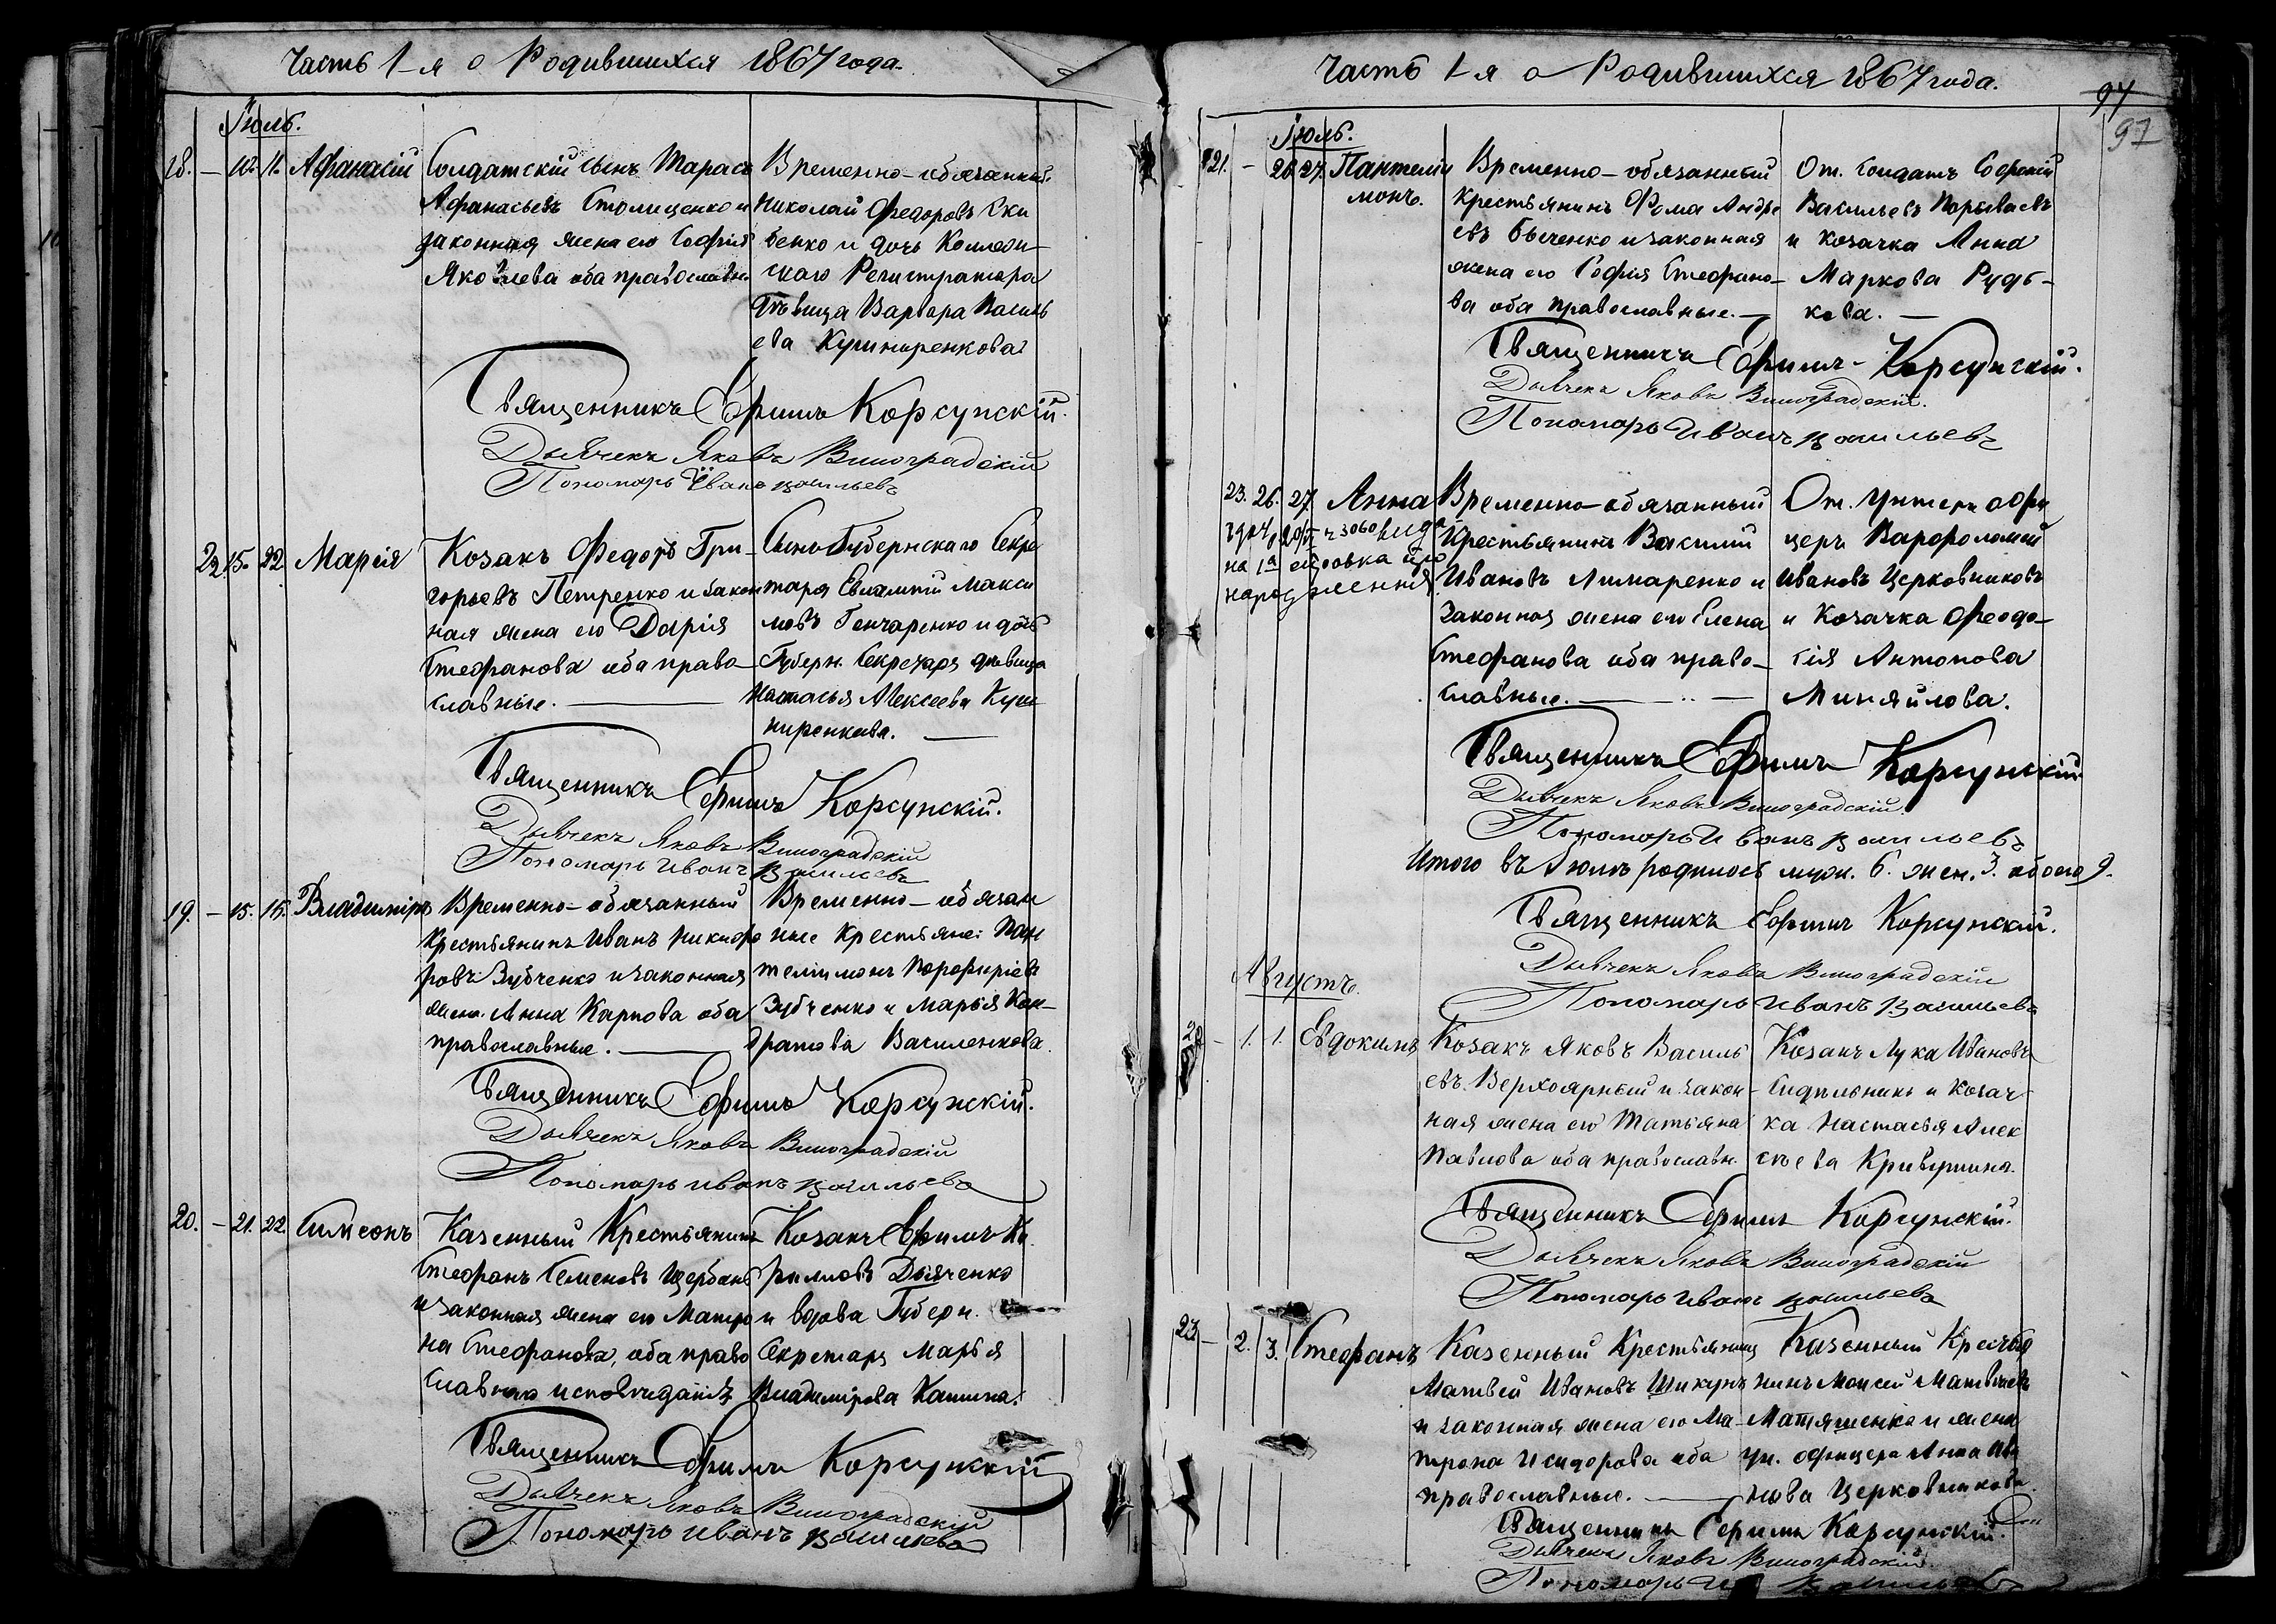 Часть 1-я о Родившихся 1867 года.
Іюль.
18. – 10. 11. Афанасій
Солдатскій сынъ Тарасъ
Афанасьевъ Столиценко и
законная жена его Софія
Яковлева оба православн.
Временно-обязанный.
Николай Федоровъ Ски
бенко и дочь Коллежи-
скаго Регистратора
дѣвица Варвара Василь
ева Кушниренкова
Священникъ Ефимъ Корсунскій.
Дьячекъ Яковъ Виноградскій
Пономарь Иванъ Васильевъ
22 15. 22. Марія
Козакъ Федоръ Гри-
горьевъ Петренко и закон
ная жена его Дарія
Стефанова оба право-
славные.
Сынъ Губернскаго Секре
таря Евлампій Макси
мовъ Гончаренко и дочь
Губерн. Секретаря дѣвица
Настасья Алексеева Куш
ниренкова.
Священникъ Ефимъ Корсунскій.
Дьячекъ Яковъ Виноградскій
Пономарь Иванъ Васильевъ
19. – 15. 15. Владиміръ
Временно-обязанный
Крестьянинъ Иванъ Никифо
ровъ Зубченко и законная
жена. Анна Карпова оба
православные.
Временно-обязан
ные Крестьяне: Пан
телимонъ Порфиріевъ
Зубченко и Марья Кон-
дратова Василенкова.
Священникъ Ефимъ Корсунскій.
Дьячекъ Яковъ Виноградскій
Пономарь Иванъ Васильевъ
20. – 21. 22. Симеонъ
Казенный Крестьянинъ
Стефанъ Семеновъ Щербань
и законная жена его Матро
на Стефанова, оба право
славнаго исповѣданія
Козакъ Ефимъ Ки
рилловъ Дьяченко
и вдова Губерн.
Секретаря Марья
Владимірова Кашина.
Священникъ Ефимъ Корсунскій
Дьячекъ Яковъ Виноградскій
Пономарь Иванъ Васильевъ
Часть 1-я о Родившихся 1867 года.
97
97
Іюль.
21. – 26 27. Пантели
монъ.
Временно-обязанный
Крестьянинъ Фома Андре
евъ Быченко и законная
жена его Софія Стефано-
ва оба православные.
От. Солдатъ Софроній
Васильевъ Порываевъ
и козачка Анна
Маркова Рудь-
кова.
Священникъ Ефимъ Корсунскій.
Дьячекъ Яковъ Виноградскій.
Пономарь Иванъ Васильевъ
23. 26. 27. Анна
на 1а
народження
Временно-обязанный
Крестьянинъ Василий
Ивановъ Лимаренко и
законная жена его Елена
Стефанова оба право-
славные.
От. Унтеръ офи
церъ Варфоломей
Ивановъ Церковниковъ
и Козачка Феодо-
сія Антонова
Миняйлова.
Священникъ Ефимъ Корсунскій
Дьячекъ Яковъ Виноградскій.
Пономарь Иванъ Васильевъ
Итого въ Іюлѣ родилось муж. 6. жен. 3. обоего 9.
Священникъ Ефимъ Корсунскій.
Дьячекъ Яковъ Виноградскій
Пономарь Иванъ Васильевъ
Августъ.
22 – 1. 1. Евдокимъ
Козакъ Яковъ Василь
евъ Верхоярный и закон-
ная жена его Татьяна
Павлова оба православн.
Козакъ Лука Ивановъ
Сидѣльникъ и козач
ка Настасья Алек
сѣева Кривушина.
Священникъ Ефимъ Корсунскій.
Дьячекъ Яковъ Виноградскій
Пономарь Иванъ Васильевъ
23 – 2. 3. Стефанъ
Казенный Крестьянинъ
Матвей Ивановъ Шикунъ
и законная жена его Ма-
трона Исидорова оба
православные.
Казенный Крестья
нинъ Моисей Матвѣевъ
Матяшенко и жена
ун. офицера Анна Ива
нова Церковникова.
Священникъ Ефимъ Корсунскій.
Дьячекъ Яковъ Виноградскій
Пономарь Ив Васильевъ